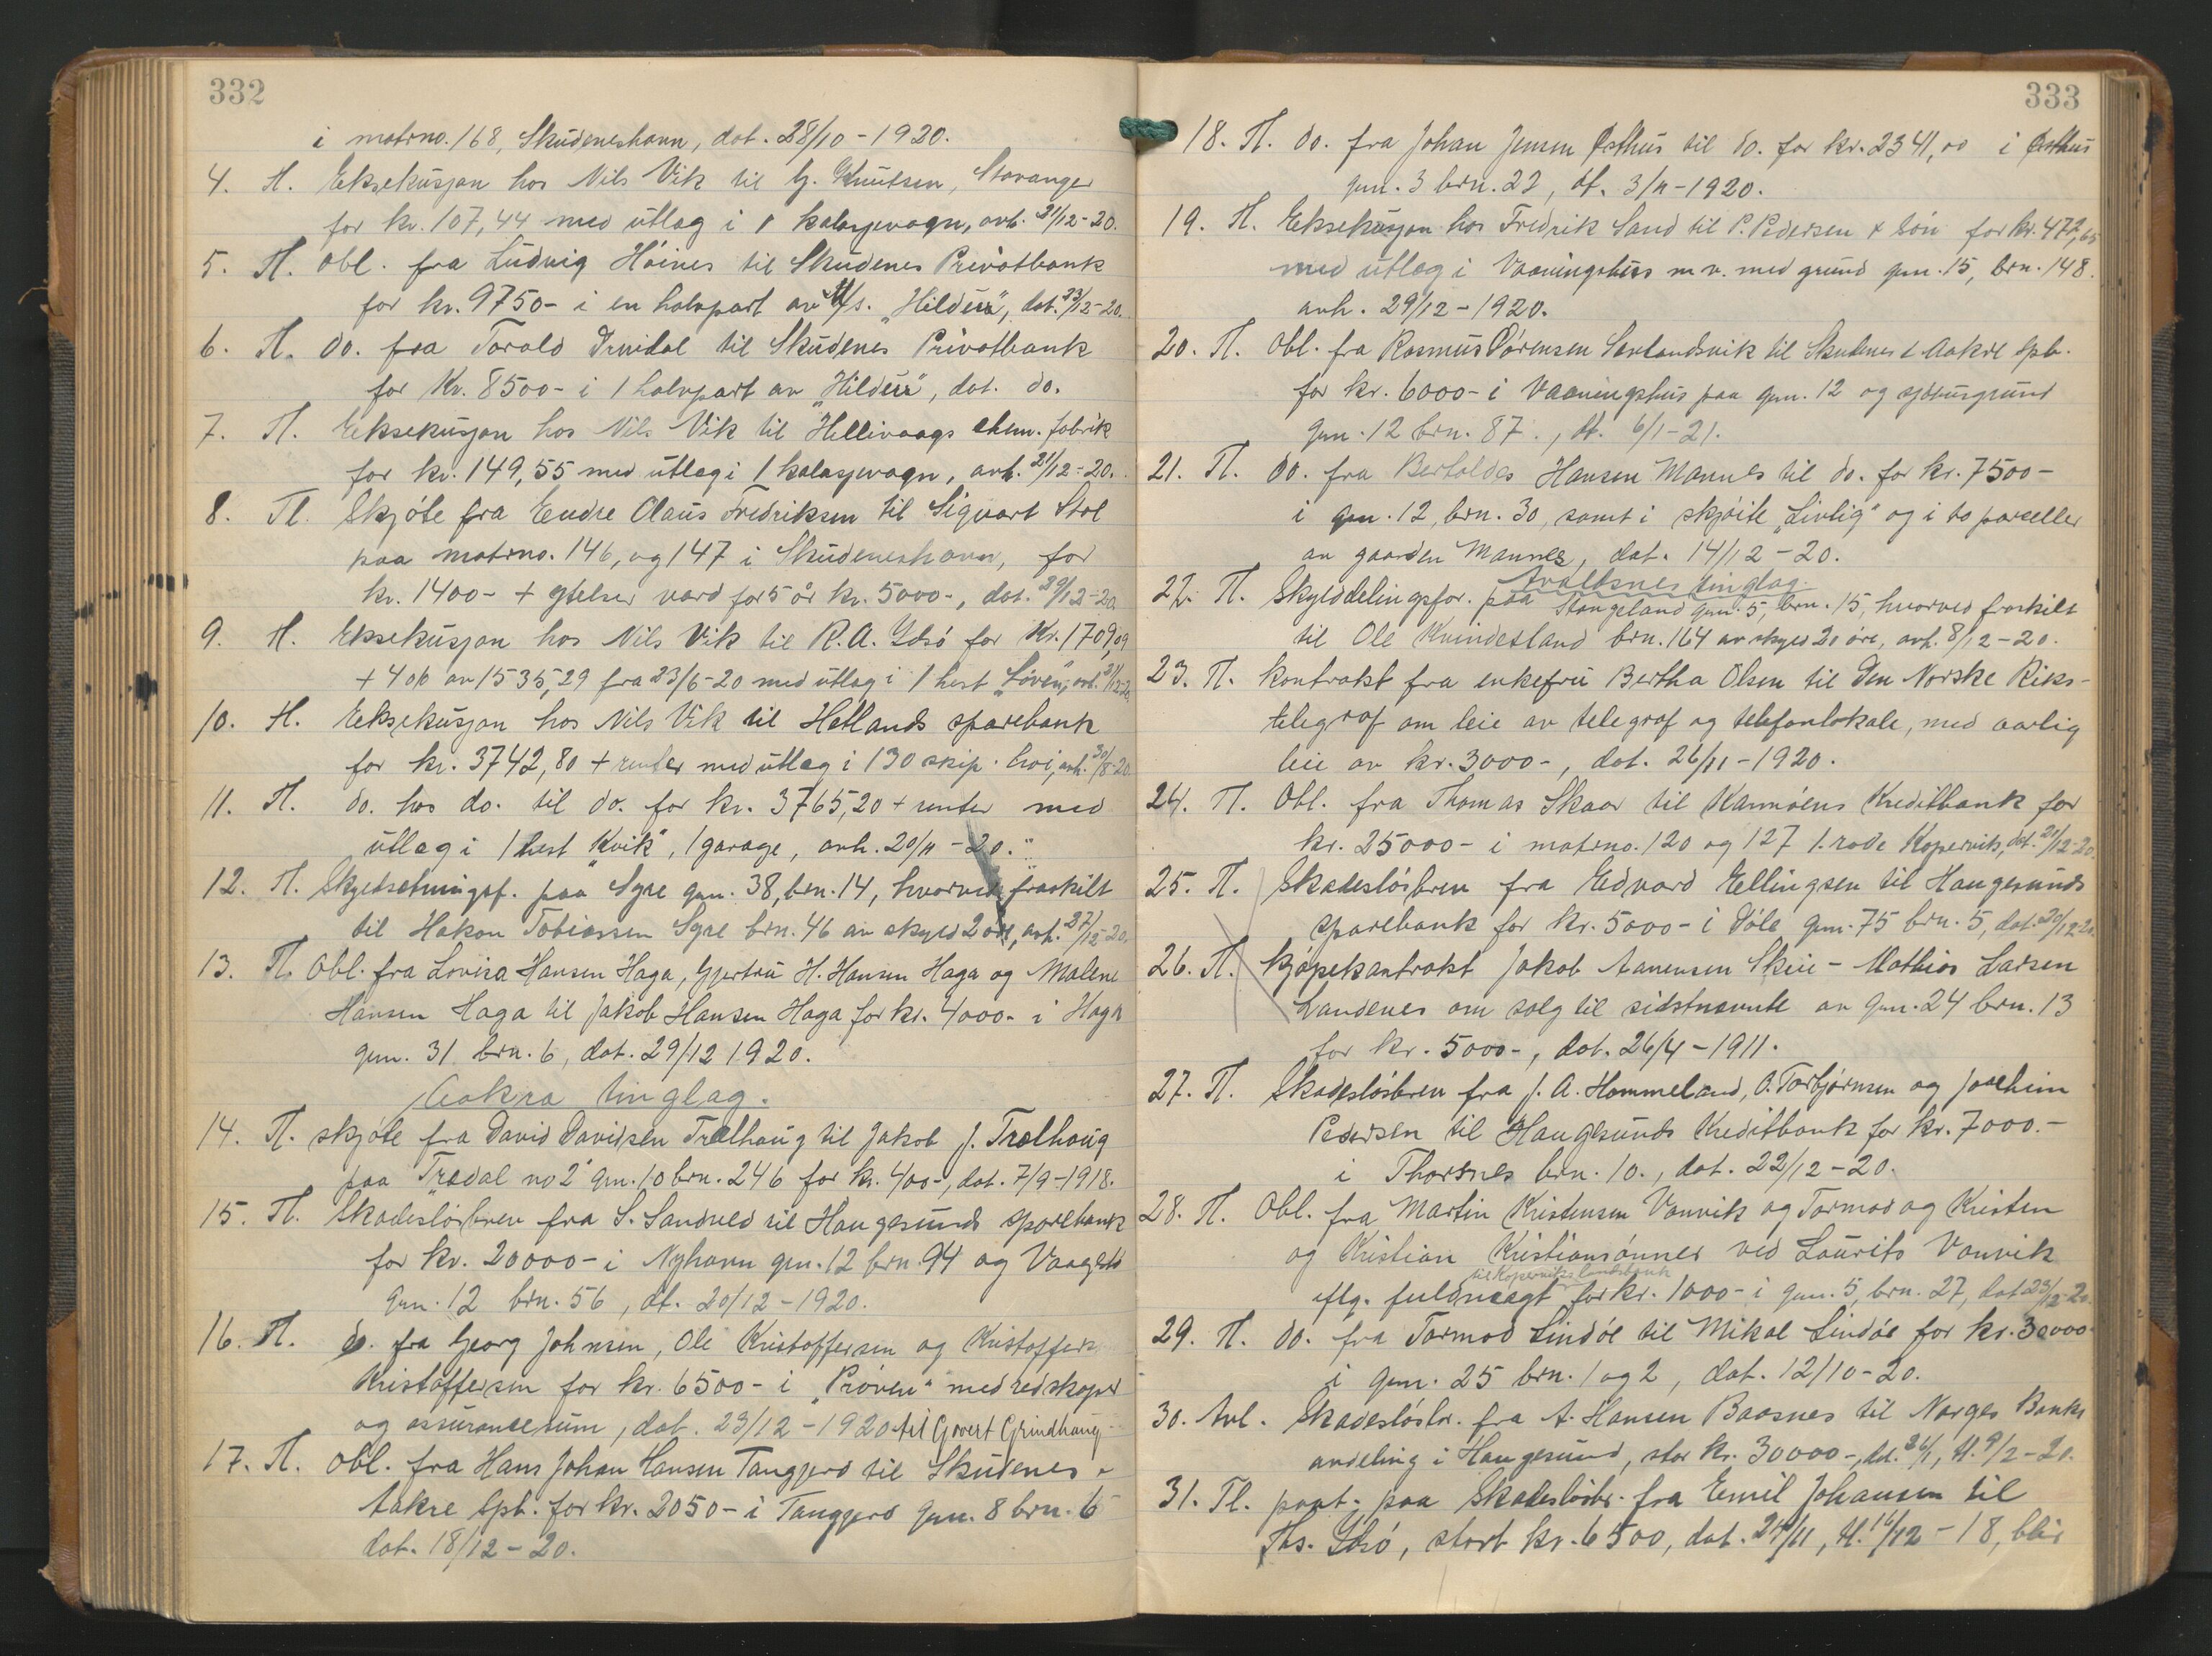 332
i matrno. 168, Skudeneshavn, dat. 28/10-1920.
4. Tl. Eksekusjon hos Nils Vik til G. Knutsen, Stavanger
for kr. 107,44 med utlag i 1 kalasjevogn, avh. 21/12-20.
5. Tl. Obl. fra Ludvig Höines til Skudenes Privatbank
for kr. 9750- i en halvpart av M/s. "Hildur", dat. 23/12-20.
6. Tl. do. fra Torald til Skudenes Privatbank
for Kr. 8500- i 1 halvpart av "Hildur", dat. do.
7. Tl. Eksekusjon hos Nils Vik til Hellivaags chem. fabrik
for kr. 149,55 med utlag i 1 kalasjevogn, avh. 21/12-20.
8. Tl. Skjöte fra Endre Olaus Fredriksen til Sigvart Stol
paa matrno. 146, og 147 i Skudeneshavn, for
kr. 1400- + ytelser værd for 5 år kr. 5000-, dat. 29/12-20.
9. Tl. Eksekusjon hos Nils Vik til R. A. Idsö for Kr. 1709,09
+ 4 o/o av 1535,29 fra 23/6-20 med utlag i 1 hest "Löven", avh. 21/12-20
10. Tl. Eeksekusjon hos Nils Vik til Hetlands sparebank
for kr. 3742,80 + renter med utlag i 130 skip. höi, avh. 30/8-20.
11. Tl. do. hos do. til do. for kr. 3765,20 + renter med
utlag i 1 hest "Kvik", 1 garage, avh. 20/11-20.
12. Tl. Skyldsetningsf. paa Syre gnr. 38, brn. 14, hvorved fraskilt
til Hakon Tobiassen Syre brn. 46 av skyld 2 öre, avh. 27/12-20.
13. Tl. Obl. fra Lovisa Hansen Haga, Gjertru H. Hansen Haga og Malene
Hansen Haga til Jakob Hansen Haga for kr. 4000.- i Haga
gnr. 31 brn. 6, dat. 29/12 1920.
Aakra tinglag.
14. Tl. skjöte fra David Davidsen Trælhaug til Jakob J. Trælhaug
paa "Trædal no 2" gnr. 10 brn. 246 for kr. 400-, dat. 7/9-1918.
15. Tl. Skadeslösbrev fra S. Sandved til Haugesunds sparebank
for kr. 20000- i Nyhavn gnr. 12 brn. 94 og
gnr. 12 brn. 56, dt. 20/12-1920.
16. Tl. do. fra Georg Johnsen, Ole Kristoffersen og Kristoffer
Kristoffersen for kr. 6500- i "Pröven" med redskaper
og assurancesum, dat. 23/12-1920 til Govert Grindhaug
17. Tl. Obl. fra Hans Johan Hansen Tangjerd til Skudenes &
Aakre Spb. for kr. 2050- i Tanggerd gnr. 8 brn. 6
dat. 18/12-20.
333
18. Tl. do. fra Johan Jensen Østhus til do. for kr. 2341,00 i Østhus
gnr. 3 brn. 22, dt. 3/11-1920.
19. Tl. Eksekusjon hos Fredrik Sand til P. Pedersen & Sön for kr. 472,65
med utlag i Vaaningshus m v. med grund gnr. 15, brn. 148.
avh. 29/12-1920.
20. Tl. Obl. fra Rasmus Sörensen Sævlandsvik til Skudenes & Aakre Spb.
for kr. 6000- i Vaaningshus paa gnr. 12 og sjöhusgrund
gnr. 12 brn. 87., dt. 6/1-21.
21. Tl. do. fra Bertoldes Hansen Mannes til do. for kr. 7500-
i gnr. 12, brn. 30, samt i skjöite "Livlig" og i to parceller
av gaarden Mannes, dat. 14/12-20.
Avaldsnes tinglag.
22. Tl. Skylddelingsfor. paa Stangeland gnr. 5, brn. 15, hvorved fraskilt
til Ole Kvindesland brn. 164 av skyld 20 öre, avh. 8/12-20.
23. Tl. Kontrakt fra enkefru Bertha Olsen til Den Norske Riks-
telegraf om leie av telegraf og telefonlokale, med aarlig
leie av kr. 3000-, dat. 26/11-1920.
24. Tl. Obl. fra Thomas Skaar til Karmöens Kreditbank for
kr. 25000- i matrno. 120 og 127 1. rode Kopervik, dat. 21/12-20.
25. Tl. Skadeslösbrev fra Edvard Ellingsen til Haugesunds
sparebank for kr. 5000- i Våle gnr. 75 brn. 5, dat. 20/12-20.
26. Tl. Kjöpekontrakt Jakob Aanensen Skeie - Mathias Larsen
Sandenes om salg til sidstnævnte av gnr. 24 brn. 13
for kr. 5000-, dat. 26/4-1911.
27. Tl. Skadeslösbrev fra J. A. Hommeland, O. Torbjörnsen og Joachim
Pedersen til Haugesunds Kreditbank for kr. 7000.-
i Thorsnes brn. 10., dat. 22/12-20.
28. Tl. Obl. fra Martin Kristensen Vanvik og Tormod og Kristen
og Kristian Kristiansönner ved Laurits Vanvik
til Koperviks landsbank
iflg. fuldmagt for kr. 1000- i gnr. 5, brn. 27, dat 23/12-20.
29. Tl. do. fra Tormod Lindöe til Mikal Lindöe for kr. 30000-
i gnr. 25 brn. 1 og 2, dat. 12/10-20.
30. Avl. Skadeslösbr. fra A. Hansen Baasnes til Norges Banks
avdeling i Haugesund, stor kr. 30000-, dd. 26/1, tl. 9/2-20.
31. Tl. paat. paa Skadeslösbr. fra Emil Johansen til
Ths. Idsö, stort kr. 6500, dat. 29/11, tl. 16/12-18, blir